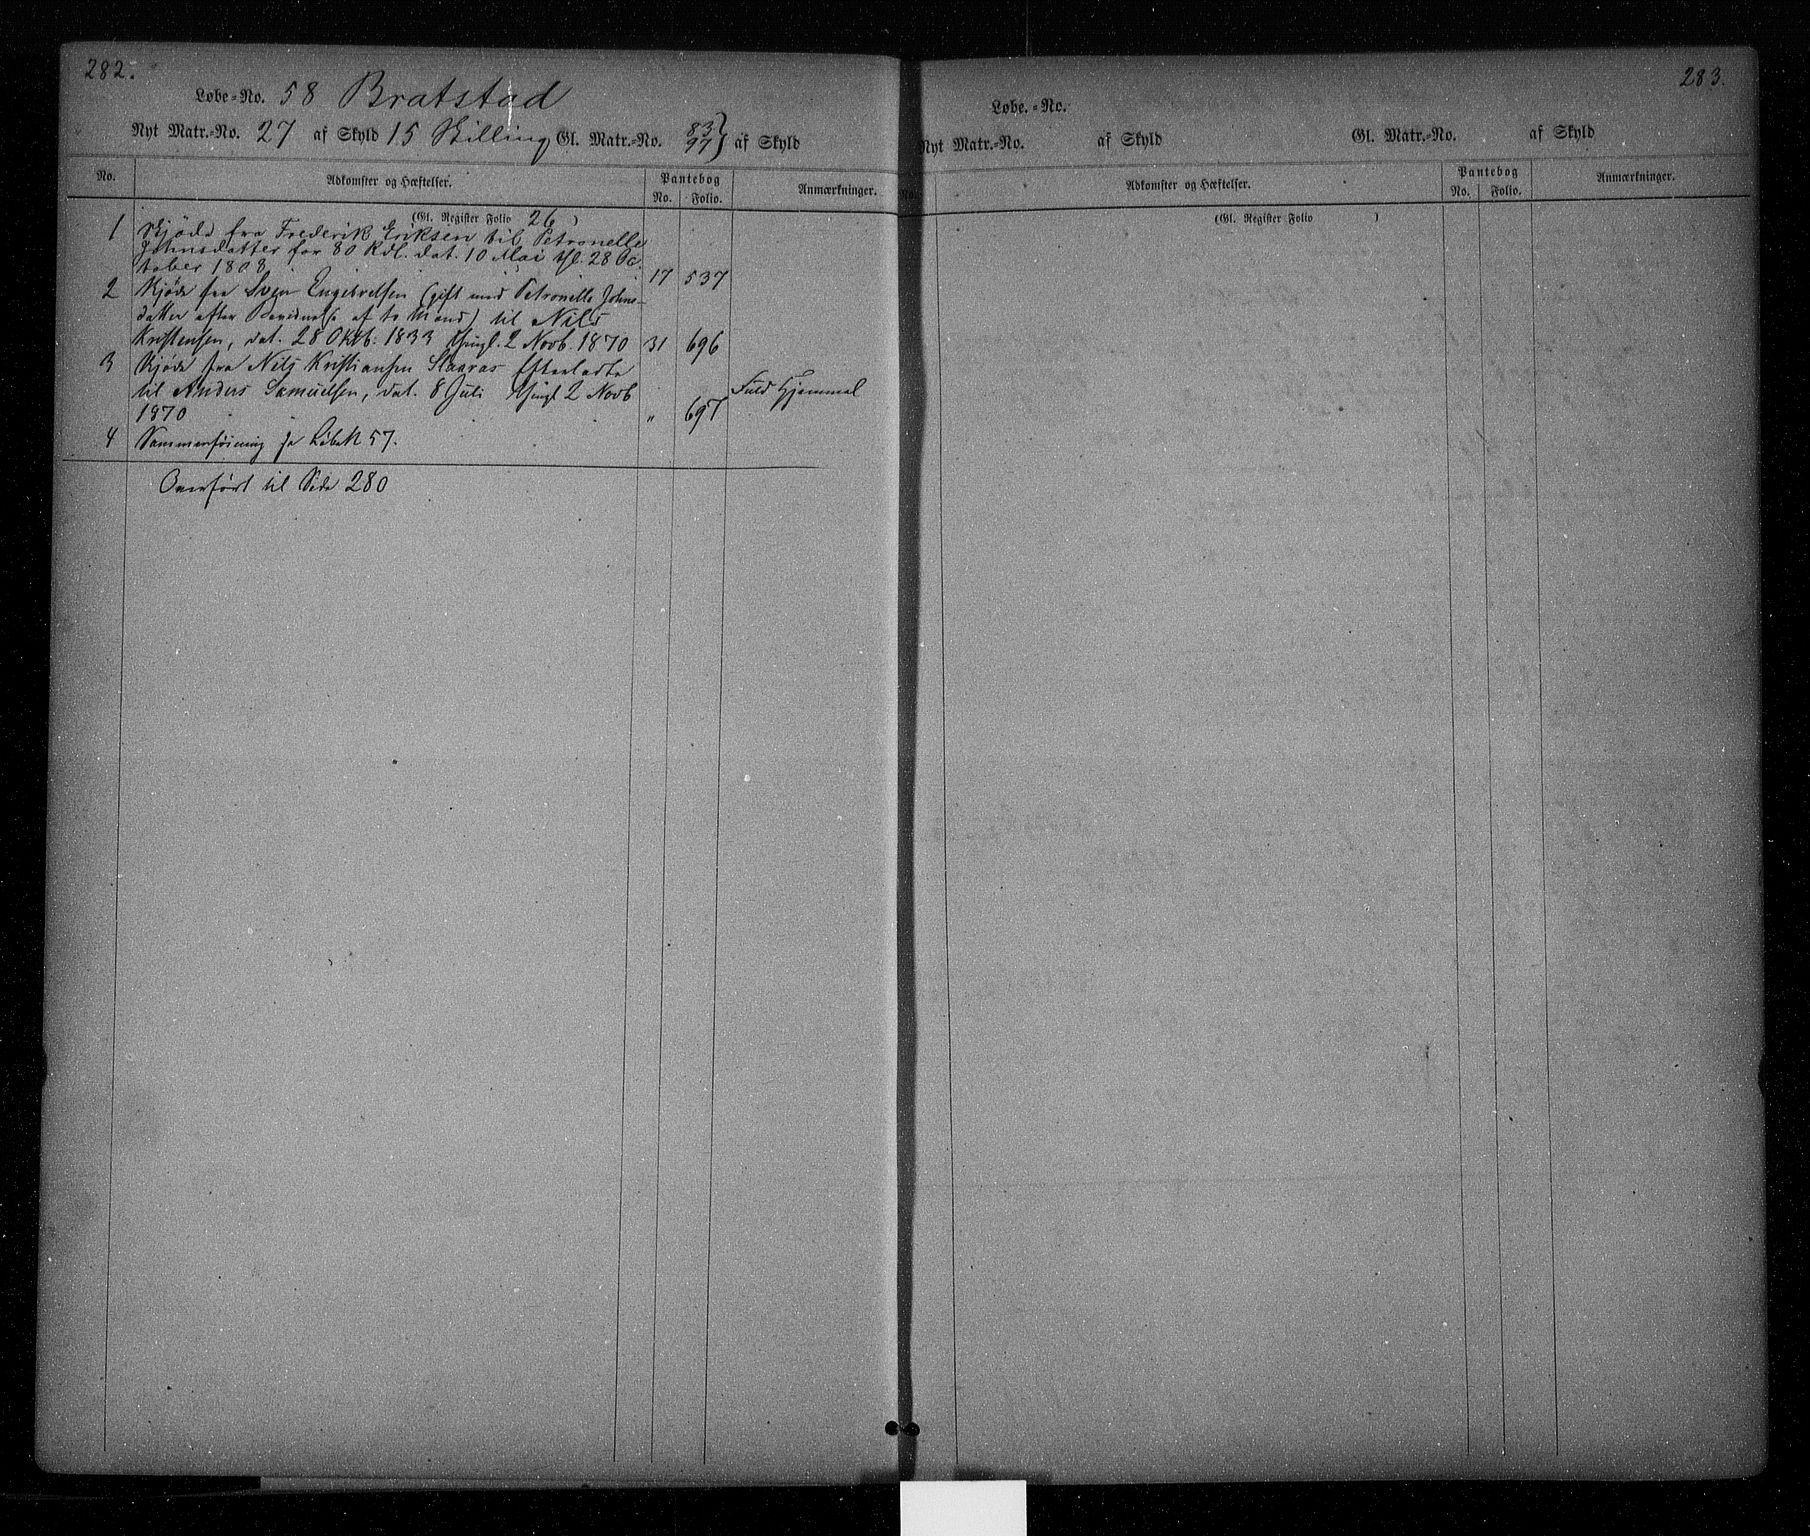 282.
Løbe=No. 58 Bratstad
Nyt Matr.=No. 27 af Skyld 15 Skilling Gl. Matr.=No. 83/97 } af Skyld
No. Adkomster og Hæftelser. Pantebog Anmærkninger.
No. Folio.
(Gl. Register Folio 26)
1 Skjøde fra Frederik Eriksen til Petronelle
Johnsdatter for 80 Rdl. dat. 10 Mai thl. 28 Oc-
tober 1808 17 537
2 Skjøde fra Sven Engebretsen (gift med Petronelle Johns-
datter efter af to Mænd) til Nils
Kristensen, dat. 28 Oktb. 1833 thingl. 2 Novb. 1870 31 696
3 Skjøde fra Nils Kristiansen Efterladte
til Anders Samuelsen, dat. 8 Juli thingl 2 Novb Fuld Hjemmel
1870 " 697
4 Sammenføining se Løbe N 57.
Overført til Side 280
283.
Løbe.=No.
Nyt Matr.=No. af Skyld Gl. Matr.=No. af Skyld
No. Adkomster og Hæftelser. Pantebog Anmærkninger.
No. Folio.
(Gl. Register Folio )